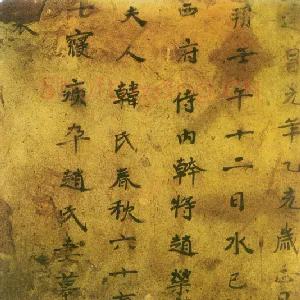 建昌元年乙亥歲正
朔壬午十二日水巳
西府侍內幹將趙榮
夫人韓氏春秋六十有
七寢疾卒趙氏妻墓